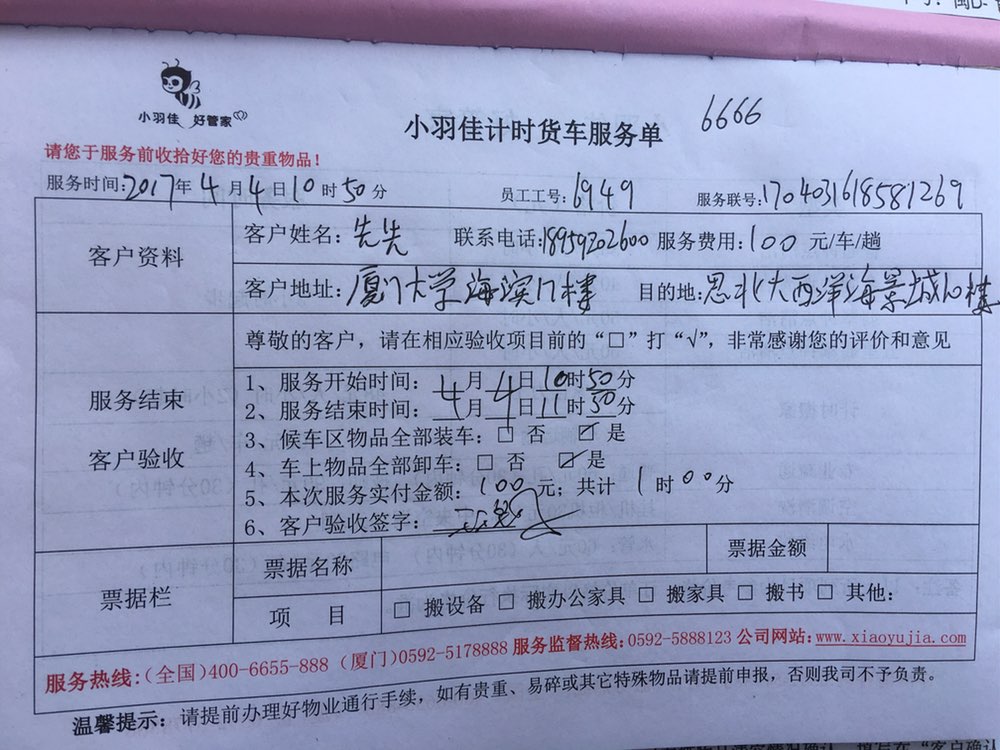 小羽佳 好管家
小羽佳计时货车服务单 6666
请您于服务前收拾好您的贵重物品！
服务时间:2017年4月4日10时50分 员工工号:6949 服务联号:1704031618581269
客户资料
客户姓名: 先先 联系电话:18959202600 服务费用:100 元/车/趟
客户地址: 厦门大学海滨门楼 目的地:思北大西洋海景城心楼
尊敬的客户，请在相应验收项目前的“□”打“√”，非常感谢您的评价和意见
服务结束
客户验收
1、服务开始时间: 4月4日10时50分
2、服务结束时间: 4月4日11时50分
3、候车区物品全部装车: □ 否 ☑ 是
4、车上物品全部卸车: □ 否 ☑ 是
5、本次服务实付金额: 100元; 共计 1时00分
6、客户验收签字:
票据栏
票据名称 票据金额
项 目 □ 搬设备 □ 搬办公家具 □ 搬家具 □ 搬书 □ 其他:
服务热线:(全国)400-6655-888 (厦门)0592-5178888 服务监督热线:0592-5888123 公司网站:www.xiaoyujia.com
温馨提示: 请提前办理好物业通行手续，如有贵重、易碎或其它特殊物品请提前申报，否则我司不予负责。